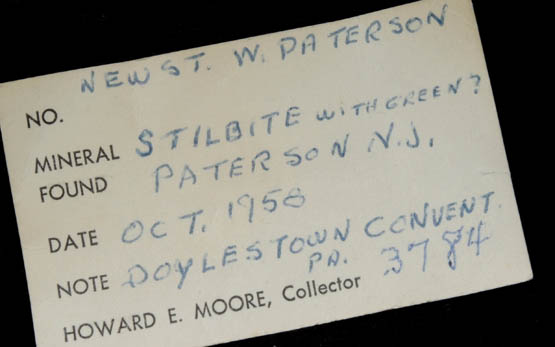 NEW ST. W. PATERSON
NO.
MINERAL STILBITE WITH GREEN?
FOUND PATERSON N.J.
DATE OCT. 1958
NOTE DOYLESTOWN CONVENT.
PA. 3784
HOWARD E. MOORE, Collector